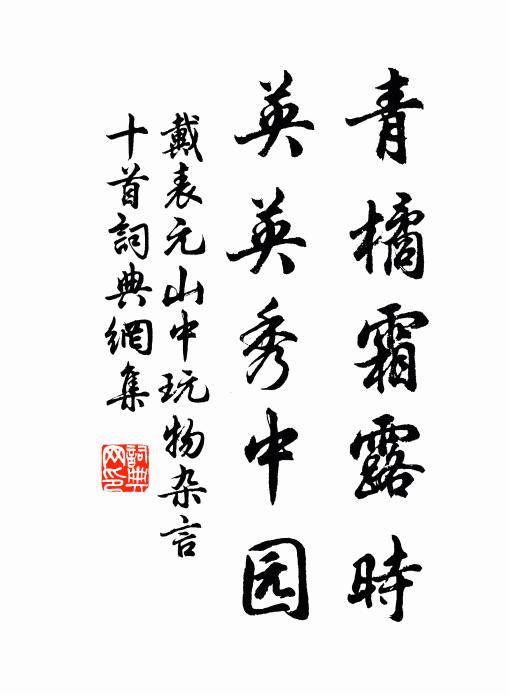 青橘霜露時
英英秀中园
戴表元山中玩物杂言
十首詞典網集
詞典网印